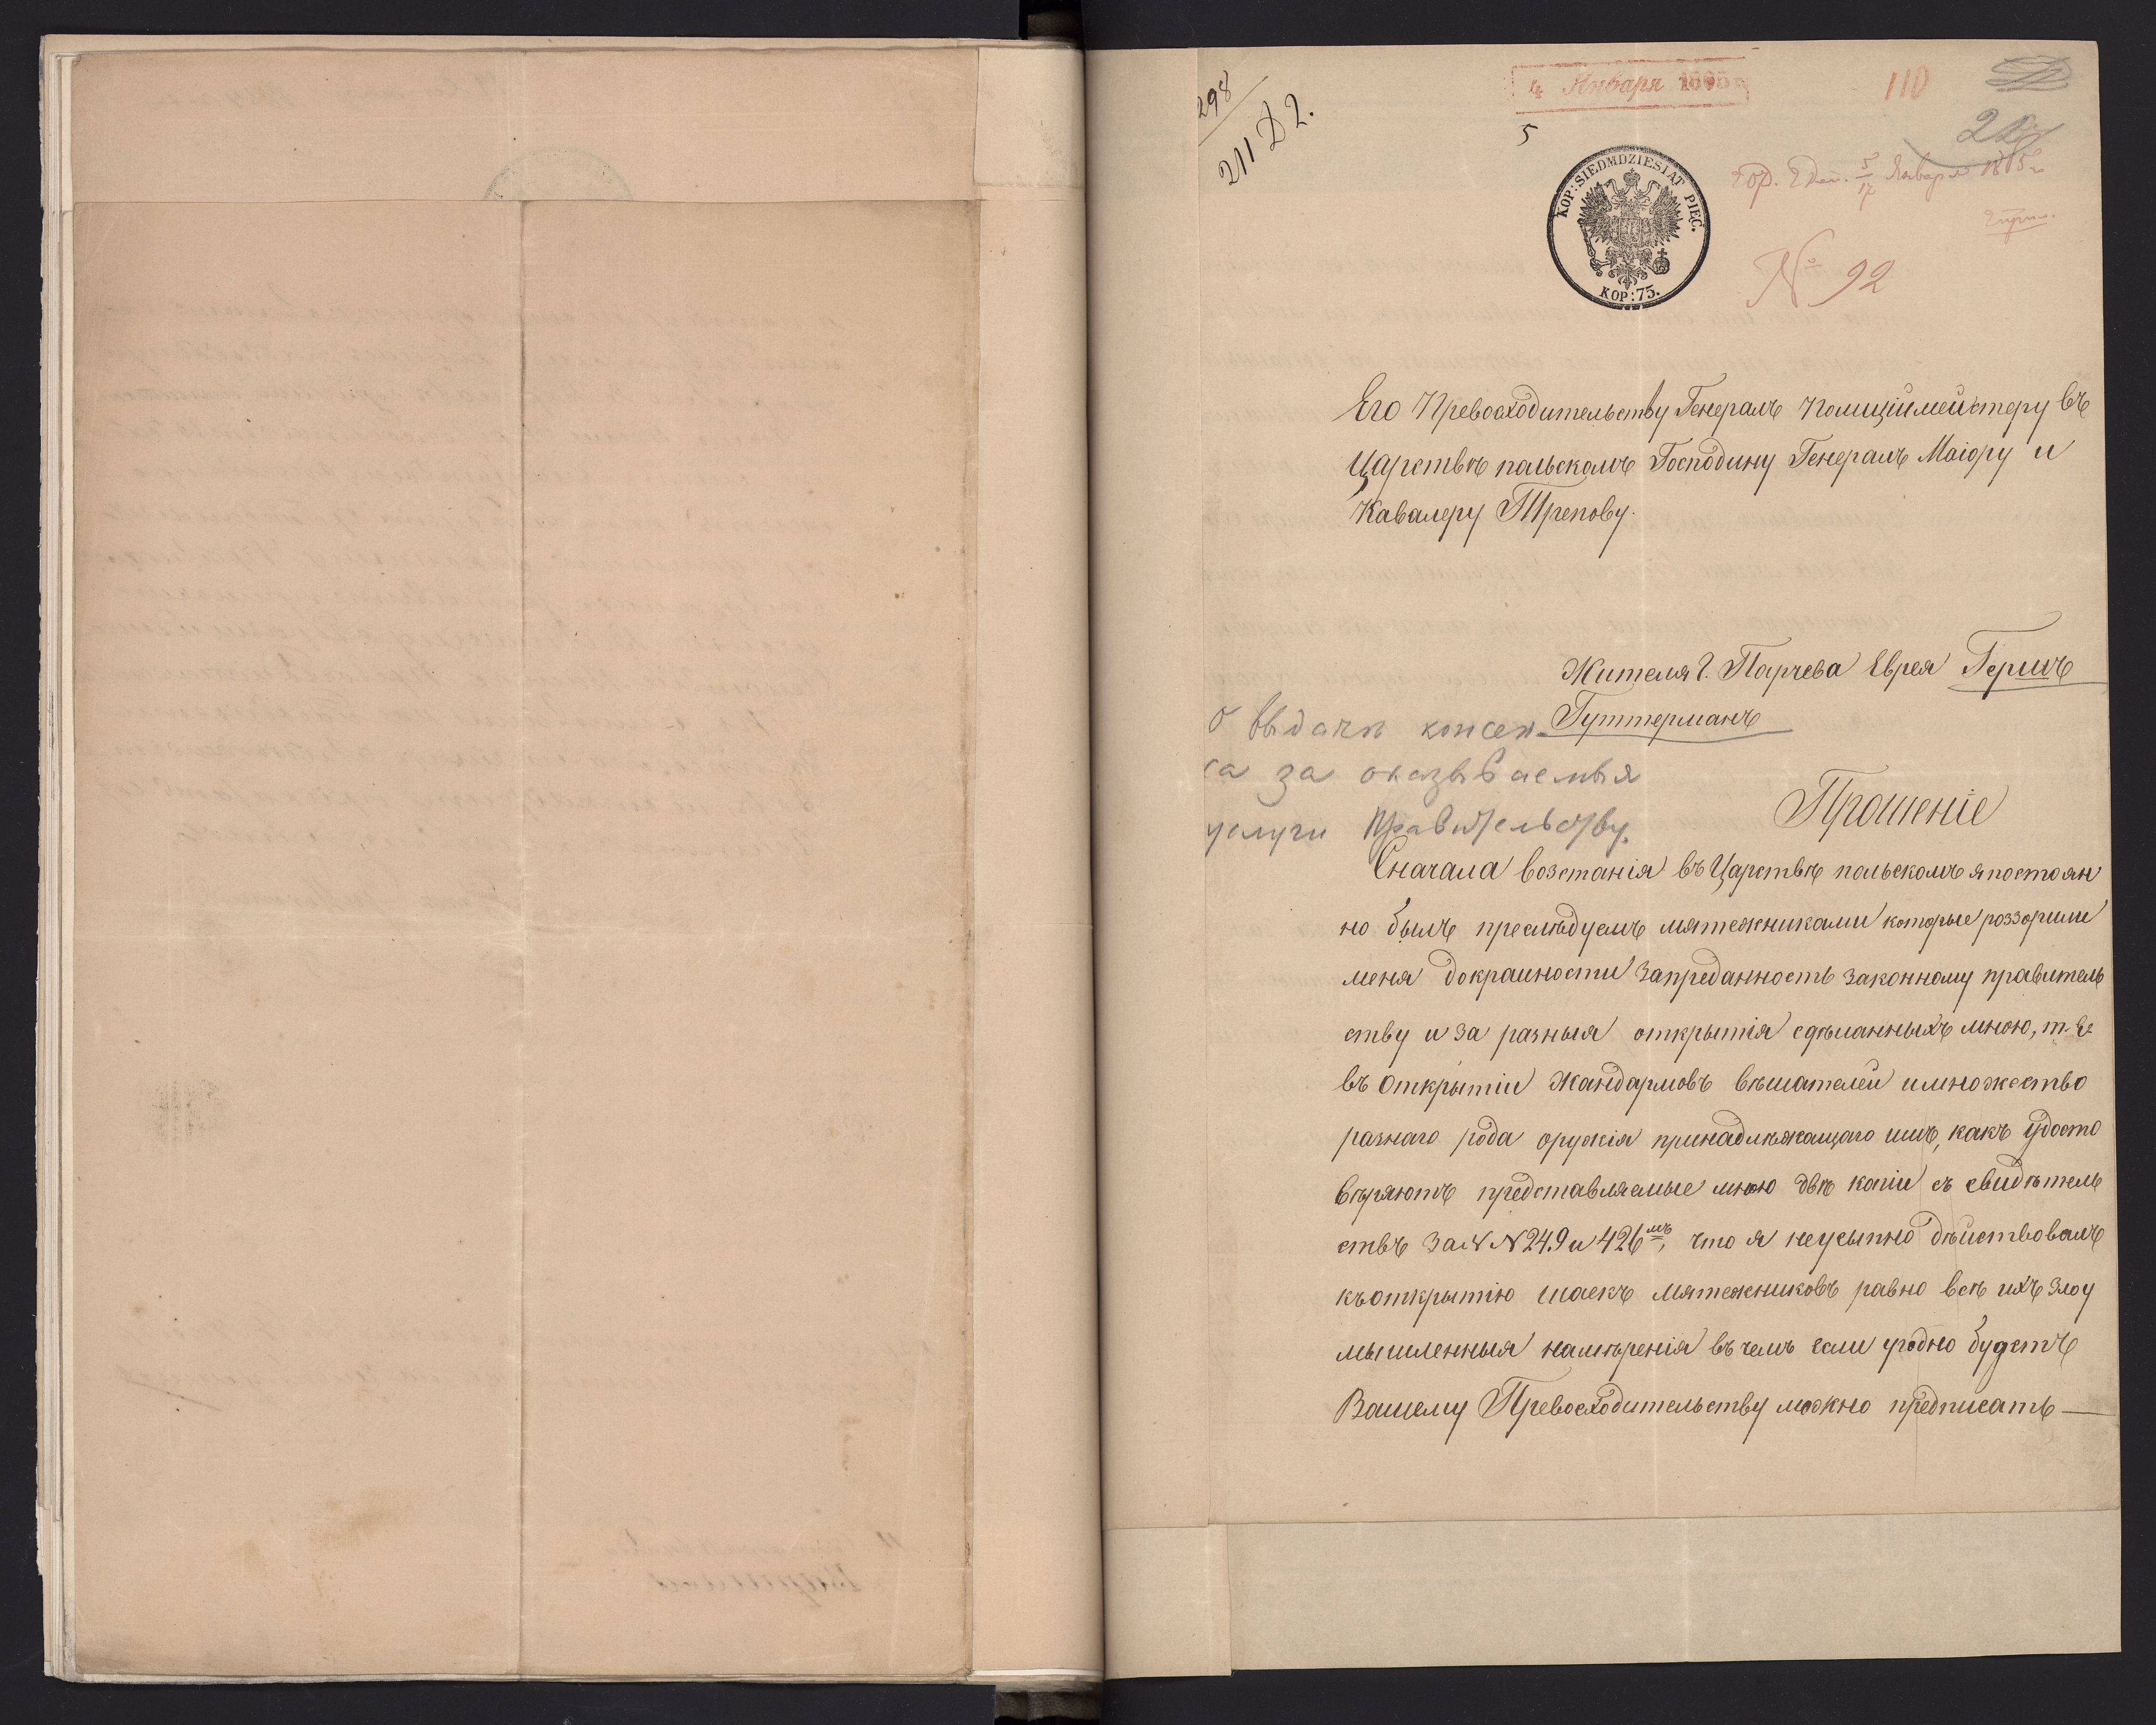 298
211 Д 2.
4 Января 1865
110
5
KOP: SIEDMDZIESIĄT PIĘĆ.
KOP: 75.
5/17 Января 1865
№ 92
Его Превосходительству Генералъ Полиціймейстеру въ
Царствѣ польскомъ Господину Генералъ Маіору и
Кавалеру Трепову.
Жителя г. Парчева Еврея Гершъ
Гуттерманъ
О выдачѣ консен-
са за оказываемыя
услуги Правительству.
Прошеніе
Сначала возстанія въ Царствѣ польскомъ я постоян
но былъ преслѣдуемъ мятежниками которые роззорили
меня докраиности запреданность законному правитель
ству и за разныя открытія сдѣланныхъ мною, т. е
въ открытіи жандармовъ вѣшателей имножество
разнаго рода оружія принадлѣжащаго имъ, какъ удосто
вѣряютъ представляемые мною двѣ копіи съ свидѣтель
ствъ За № N 249 и 426мъ, что я неусыпно дѣйствовалъ
къоткрытію шаекъ мятежниковъ равно всѣ ихъ злоу
мышленныя намѣренія въ чемъ если угодно будетъ
Вашему Превосходительству можно предписать —